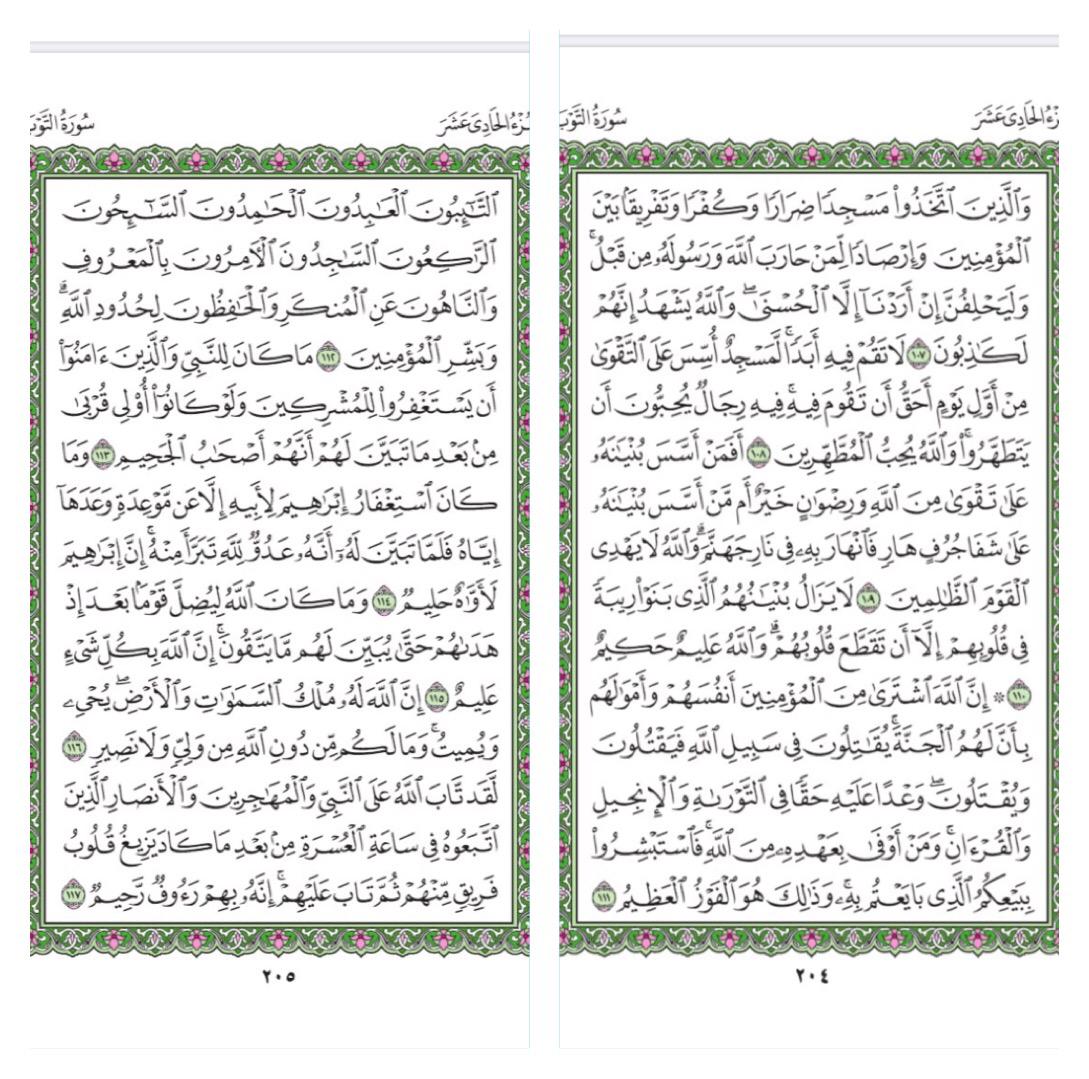 ـزْءُ الْحَادِىَ عَشَرَ
سُورَةُ التَّوْبَ
وَٱلَّذِينَ ٱتَّخَذُواْ مَسْجِدًا ضِرَارًا وَكُفْرًا وَتَفْرِيقًۢا بَيْنَ
ٱلْمُؤْمِنِينَ وَإِرْصَادًا لِّمَنْ حَارَبَ ٱللَّهَ وَرَسُولَهُۥ مِن قَبْلُۚ
وَلَيَحْلِفُنَّ إِنْ أَرَدْنَآ إِلَّا ٱلْحُسْنَىٰۖ وَٱللَّهُ يَشْهَدُ إِنَّهُمْ
لَكَٰذِبُونَ ١٠٧ لَا تَقُمْ فِيهِ أَبَدًاۚ لَّمَسْجِدٌ أُسِّسَ عَلَى ٱلتَّقْوَىٰ
مِنْ أَوَّلِ يَوْمٍ أَحَقُّ أَن تَقُومَ فِيهِۚ فِيهِ رِجَالٌ يُحِبُّونَ أَن
يَتَطَهَّرُواْۚ وَٱللَّهُ يُحِبُّ ٱلْمُطَّهِّرِينَ ١٠٨ أَفَمَنْ أَسَّسَ بُنْيَٰنَهُۥ
عَلَىٰ تَقْوَىٰ مِنَ ٱللَّهِ وَرِضْوَٰنٍ خَيْرٌ أَم مَّنْ أَسَّسَ بُنْيَٰنَهُۥ
عَلَىٰ شَفَا جُرُفٍ هَارٍ فَٱنْهَارَ بِهِۦ فِى نَارِ جَهَنَّمَۗ وَٱللَّهُ لَا يَهْدِى
ٱلْقَوْمَ ٱلظَّٰلِمِينَ ١٠٩ لَا يَزَالُ بُنْيَٰنُهُمُ ٱلَّذِى بَنَوْاْ رِيبَةً
فِى قُلُوبِهِمْ إِلَّآ أَن تَقَطَّعَ قُلُوبُهُمْۗ وَٱللَّهُ عَلِيمٌ حَكِيمٌ
١١٠ ۞ إِنَّ ٱللَّهَ ٱشْتَرَىٰ مِنَ ٱلْمُؤْمِنِينَ أَنفُسَهُمْ وَأَمْوَٰلَهُم
بِأَنَّ لَهُمُ ٱلْجَنَّةَۚ يُقَٰتِلُونَ فِى سَبِيلِ ٱللَّهِ فَيَقْتُلُونَ
وَيُقْتَلُونَۖ وَعْدًا عَلَيْهِ حَقًّا فِى ٱلتَّوْرَىٰةِ وَٱلْإِنجِيلِ
وَٱلْقُرْءَانِۚ وَمَنْ أَوْفَىٰ بِعَهْدِهِۦ مِنَ ٱللَّهِۚ فَٱسْتَبْشِرُواْ
بِبَيْعِكُمُ ٱلَّذِى بَايَعْتُم بِهِۦۚ وَذَٰلِكَ هُوَ ٱلْفَوْزُ ٱلْعَظِيمُ ١١١
٢٠٤
ـزْءُ الْحَادِىَ عَشَرَ
سُورَةُ التَّوْبَ
ٱلتَّٰٓئِبُونَ ٱلْعَٰبِدُونَ ٱلْحَٰمِدُونَ ٱلسَّٰٓئِحُونَ
ٱلرَّٰكِعُونَ ٱلسَّٰجِدُونَ ٱلْءَامِرُونَ بِٱلْمَعْرُوفِ
وَٱلنَّاهُونَ عَنِ ٱلْمُنكَرِ وَٱلْحَٰفِظُونَ لِحُدُودِ ٱللَّهِۗ
وَبَشِّرِ ٱلْمُؤْمِنِينَ ١١٢ مَا كَانَ لِلنَّبِىِّ وَٱلَّذِينَ ءَامَنُوٓاْ
أَن يَسْتَغْفِرُواْ لِلْمُشْرِكِينَ وَلَوْ كَانُوٓاْ أُوْلِى قُرْبَىٰ
مِنۢ بَعْدِ مَا تَبَيَّنَ لَهُمْ أَنَّهُمْ أَصْحَٰبُ ٱلْجَحِيمِ ١١٣ وَمَا
كَانَ ٱسْتِغْفَارُ إِبْرَٰهِيمَ لِأَبِيهِ إِلَّا عَن مَّوْعِدَةٍ وَعَدَهَآ
إِيَّاهُ فَلَمَّا تَبَيَّنَ لَهُۥٓ أَنَّهُۥ عَدُوٌّ لِّلَّهِ تَبَرَّأَ مِنْهُۚ إِنَّ إِبْرَٰهِيمَ
لَأَوَّٰهٌ حَلِيمٌ ١١٤ وَمَا كَانَ ٱللَّهُ لِيُضِلَّ قَوْمًۢا بَعْدَ إِذْ
هَدَىٰهُمْ حَتَّىٰ يُبَيِّنَ لَهُم مَّا يَتَّقُونَۚ إِنَّ ٱللَّهَ بِكُلِّ شَىْءٍ
عَلِيمٌ ١١٥ إِنَّ ٱللَّهَ لَهُۥ مُلْكُ ٱلسَّمَٰوَٰتِ وَٱلْأَرْضِۖ يُحْىِۦ
وَيُمِيتُۚ وَمَا لَكُم مِّن دُونِ ٱللَّهِ مِن وَلِىٍّ وَلَا نَصِيرٍ ١١٦
لَّقَد تَّابَ ٱللَّهُ عَلَى ٱلنَّبِىِّ وَٱلْمُهَٰجِرِينَ وَٱلْأَنصَارِ ٱلَّذِينَ
ٱتَّبَعُوهُ فِى سَاعَةِ ٱلْعُسْرَةِ مِنۢ بَعْدِ مَا كَادَ يَزِيغُ قُلُوبُ
فَرِيقٍ مِّنْهُمْ ثُمَّ تَابَ عَلَيْهِمْۚ إِنَّهُۥ بِهِمْ رَءُوفٌ رَّحِيمٌ ١١٧
٢٠٥